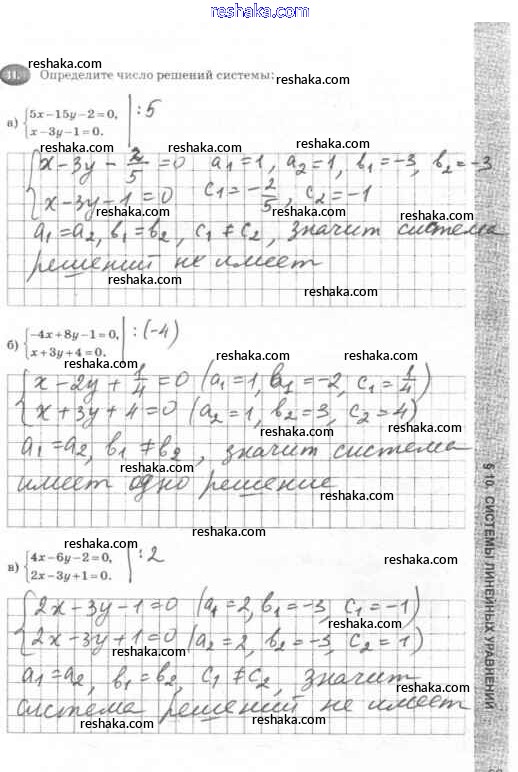 reshaka.com
reshaka.com
41. Определите число решений системы:
а) { 5x − 15y − 2 = 0, | : 5
x − 3y − 1 = 0.
{ x − 3y − 2/5 = 0 a₁ = 1, a₂ = 1, b₁ = −3, b₂ = −3
x − 3y − 1 = 0 c₁ = −2/5, c₂ = −1
a₁ = a₂, b₁ = b₂, c₁ ≠ c₂, значит система
решений не имеет
б) { −4x + 8y − 1 = 0, | : (−4)
x + 3y + 4 = 0.
{ x − 2y + 1/4 = 0 (a₁ = 1, b₁ = −2, c₁ = 1/4)
x + 3y + 4 = 0 (a₂ = 1, b₂ = 3, c₂ = 4)
a₁ = a₂, b₁ ≠ b₂, значит система
имеет одно решение
в) { 4x − 6y − 2 = 0, | : 2
2x − 3y + 1 = 0.
{ 2x − 3y − 1 = 0 (a₁ = 2, b₁ = −3, c₁ = −1)
2x − 3y + 1 = 0 (a₂ = 2, b₂ = −3, c₂ = 1)
a₁ = a₂, b₁ = b₂, c₁ ≠ c₂, значит
система решений не имеет
§ 10. СИСТЕМЫ ЛИНЕЙНЫХ УРАВНЕНИЙ